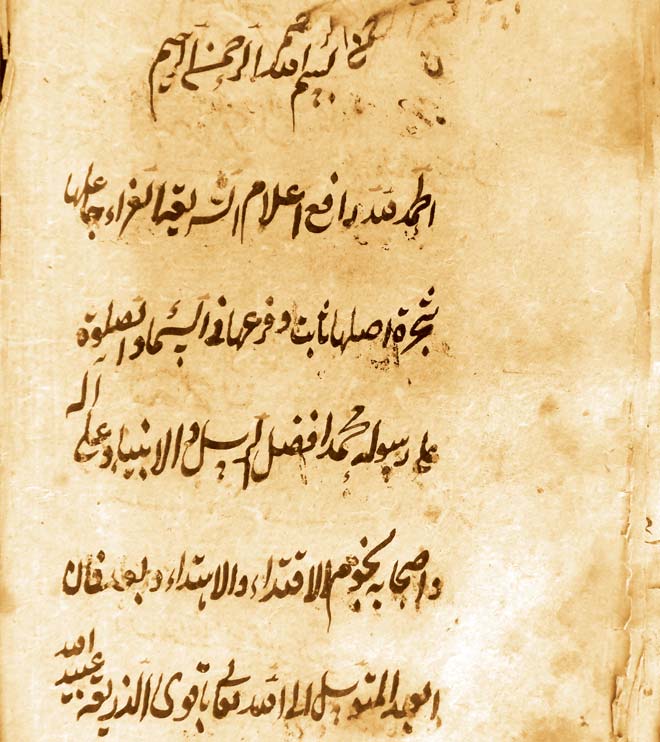 بسم الله الرحمن الرحيم
الحمد لله رافع اعلام الشريعة الغراء جاعلها
شجرة اصلها ثابت وفرعها فى السماء والصلوة
على رسوله محمد افضل الرسل والانبياء وعلى آله
واصحابه نجوم الاقتداء والاهتداء وبعد فان
العبد المتوسل الى الله تعالى باقوى الذريعة عبيد الله